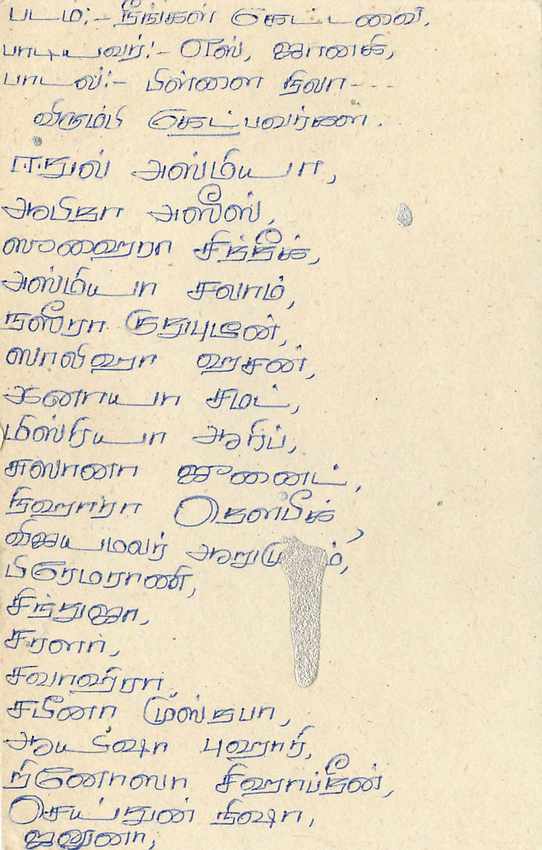 படம்:- நீங்கள் கெட்டவை.
பாடியவர்:- எஸ், ஜானகி,
பாடல்:- பிள்ளை நிலா---
விரும்பி கெட்பவர்கள்.
ஈறுல் அஸ்மியா,
ஆபிதா அஸீஸ்,
ஸுஹைரா சித்தீக்,
அஸ்மியா சலாம்,
நஸீரா குறுபுடீன்,
ஸாலிஹா ஹசன்,
சமட்,
மிஸ்ரியா ஆரிப்,
சுலானா ஜுனைட்,
நிஹாரா தௌபீக்,
விஜயமலர்
பிரேமராணி,
சிந்துஜா,
சரளா,
சவாஹிரா,
சபீனா முஸ்தபா,
ஆயிஷா புஹாரி,
றினோஸா சிஹாப்தீன்,
செய்துன் நிஷா,
ஜனூனா,